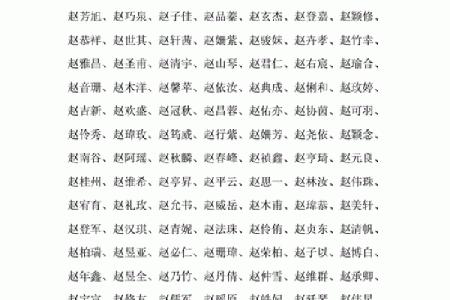 赵芳旭、赵巧泉、赵子佳、赵品蓁、赵玄杰、赵登嘉、赵颖修、
赵恭祥、赵世其、赵轩茜、赵姗紫、赵骏妹、赵卉孝、赵竹幸、
赵雅昌、赵圣甫、赵清宇、赵山琴、赵君仁、赵右宸、赵瑜合、
赵音珊、赵木洋、赵馨苹、赵依汝、赵典成、赵俐和、赵玫婷、
赵吉新、赵欢盛、赵冠秋、赵昌蓉、赵佑亦、赵协茵、赵可羽、
赵伶秀、赵瑋玫、赵筠威、赵行紫、赵姗芳、赵尧依、赵颖念、
赵南谷、赵阿瑶、赵秋麟、赵春峰、赵祯鑫、赵亨琦、赵元良、
赵桂州、赵惟希、赵亭昇、赵平云、赵思一、赵林汝、赵伟珠、
赵宥育、赵礼玫、赵允书、赵威岳、赵木甫、赵瑋恭、赵美轩、
赵登军、赵汉琪、赵青妮、赵法珠、赵伶侑、赵贞东、赵清帆、
赵柏瑞、赵昱亚、赵必仁、赵珊瑋、赵荣柏、赵子以、赵博白、
赵年鑫、赵昱全、赵乃竹、赵丹倩、赵仲雪、赵维群、赵承卿、